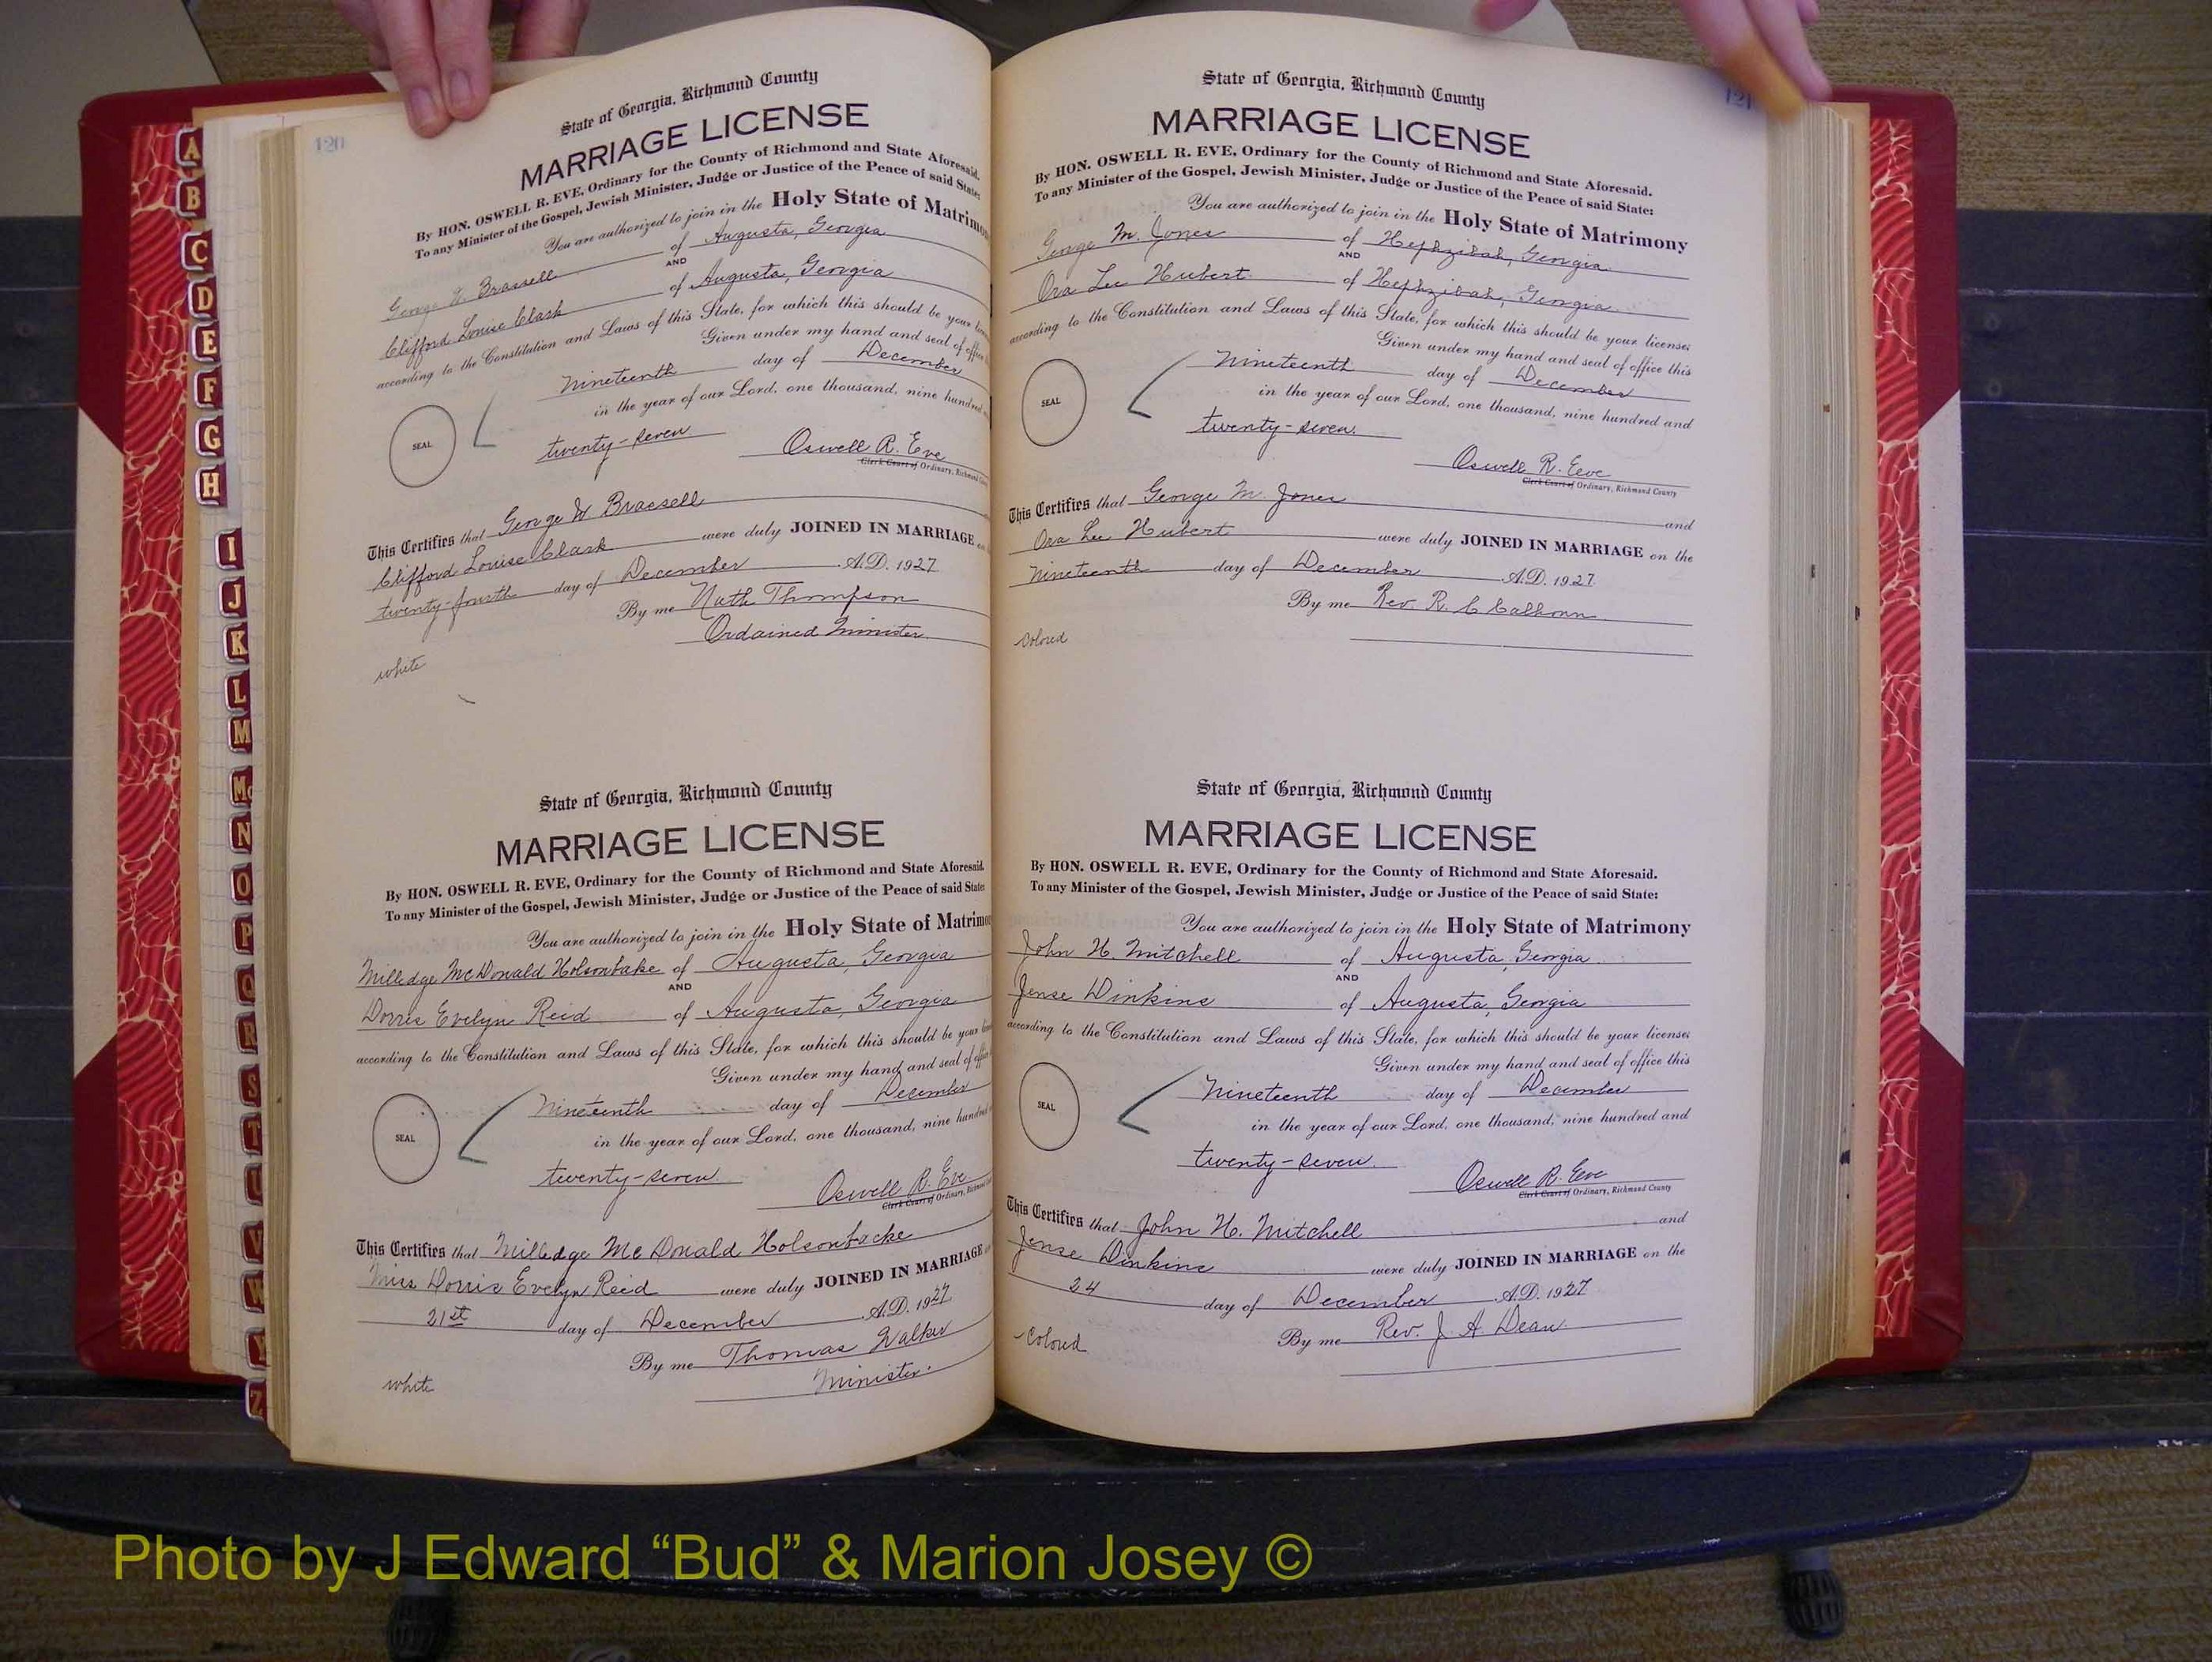 A
B
C
D
E
F
G
H
I
J
K
L
M
Mc
N
O
P
Q
R
S
T
U
V
W
Y
Z
120
State of Georgia, Richmond County
MARRIAGE LICENSE
By HON. OSWELL R. EVE, Ordinary for the County of Richmond and State Aforesaid.
To any Minister of the Gospel, Jewish Minister, Judge or Justice of the Peace of said State:
You are authorized to join in the Holy State of Matrimo
George W. Brassell of Augusta, Georgia
AND
Clifford Louise Clark of Augusta, Georgia
according to the Constitution and Laws of this State, for which this should be your
Given under my hand and seal of office
Nineteenth day of December
in the year of our Lord, one thousand, nine hundred
SEAL
twenty-seven
Oswell R. Eve
Clerk Court of Ordinary, Richmond
This Certifies that George W Brassell
Clifford Louise Clark were duly JOINED IN MARRIAGE
twenty-fourth day of December A.D. 1927
By me Nath Thompson
Ordained Minister
white
State of Georgia, Richmond County
MARRIAGE LICENSE
By HON. OSWELL R. EVE, Ordinary for the County of Richmond and State Aforesaid.
To any Minister of the Gospel, Jewish Minister, Judge or Justice of the Peace of said State:
You are authorized to join in the Holy State of Matrimo
Milledge McDonald Holsonbake of Augusta, Georgia
AND
Dorris Evelyn Reid of Augusta, Georgia
according to the Constitution and Laws of this State, for which this should be your
Given under my hand and seal of
Nineteenth day of December
in the year of our Lord, one thousand, nine hundred
SEAL
twenty-seven.
Oswell R. Eve
Clerk Court of Ordinary, Richmond
This Certifies that Milledge McDonald Holsonbacke
Miss Dorris Evelyn Reid were duly JOINED IN MARRIAGE
21st day of December A.D. 1927
By me Thomas Walker
Minister.
white
121
State of Georgia, Richmond County
MARRIAGE LICENSE
By HON. OSWELL R. EVE, Ordinary for the County of Richmond and State Aforesaid.
To any Minister of the Gospel, Jewish Minister, Judge or Justice of the Peace of said State:
You are authorized to join in the Holy State of Matrimony
George M. Jones of Hephzibah, Georgia
AND
Ora Lee Hubert of Hephzibah, Georgia
according to the Constitution and Laws of this State, for which this should be your license;
Given under my hand and seal of office this
Nineteenth day of December
in the year of our Lord, one thousand, nine hundred and
SEAL
twenty-seven.
Oswell R. Eve
Clerk Court of Ordinary, Richmond County
This Certifies that George M. Jones and
Ora Lee Hubert were duly JOINED IN MARRIAGE on the
Nineteenth day of December A.D. 1927
By me Rev. R. C Calhoun
Colored
State of Georgia, Richmond County
MARRIAGE LICENSE
By HON. OSWELL R. EVE, Ordinary for the County of Richmond and State Aforesaid.
To any Minister of the Gospel, Jewish Minister, Judge or Justice of the Peace of said State:
You are authorized to join in the Holy State of Matrimony
John H. Mitchell of Augusta, Georgia
AND
Jense Dinkins of Augusta, Georgia
according to the Constitution and Laws of this State, for which this should be your license;
Given under my hand and seal of office this
Nineteenth day of December
in the year of our Lord, one thousand, nine hundred and
SEAL
twenty-seven.
Oswell R. Eve
Clerk Court of Ordinary, Richmond County
This Certifies that John H. Mitchell and
Jense Dinkins were duly JOINED IN MARRIAGE on the
24 day of December A.D. 1927
By me Rev. J A Dean
Colored
Photo by J Edward “Bud” & Marion Josey ©